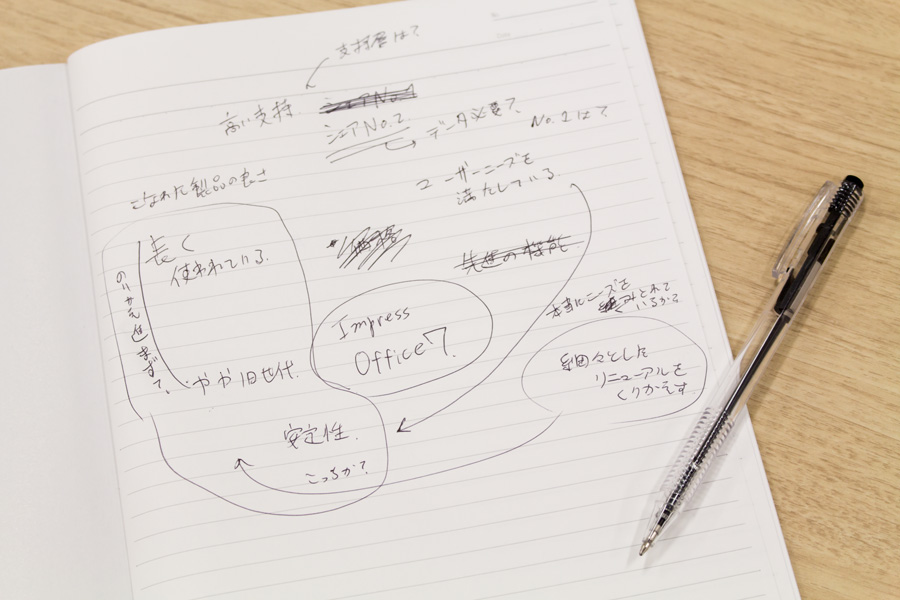 支持層は?
高い支持.
シェアNo.1
シェアNo.2
データ必要?
No.1は?
ユーザーニーズを
満たしている.
こなれた製品の良さ
長く
使われている.
のりかえ進まず?
価格
先進の機能
本当にニーズを
くみとれて
いるか?
Impress
Office 7.
細々とした
リニューアルを
くりかえす
やや旧世代.
安定性.
こっちか?